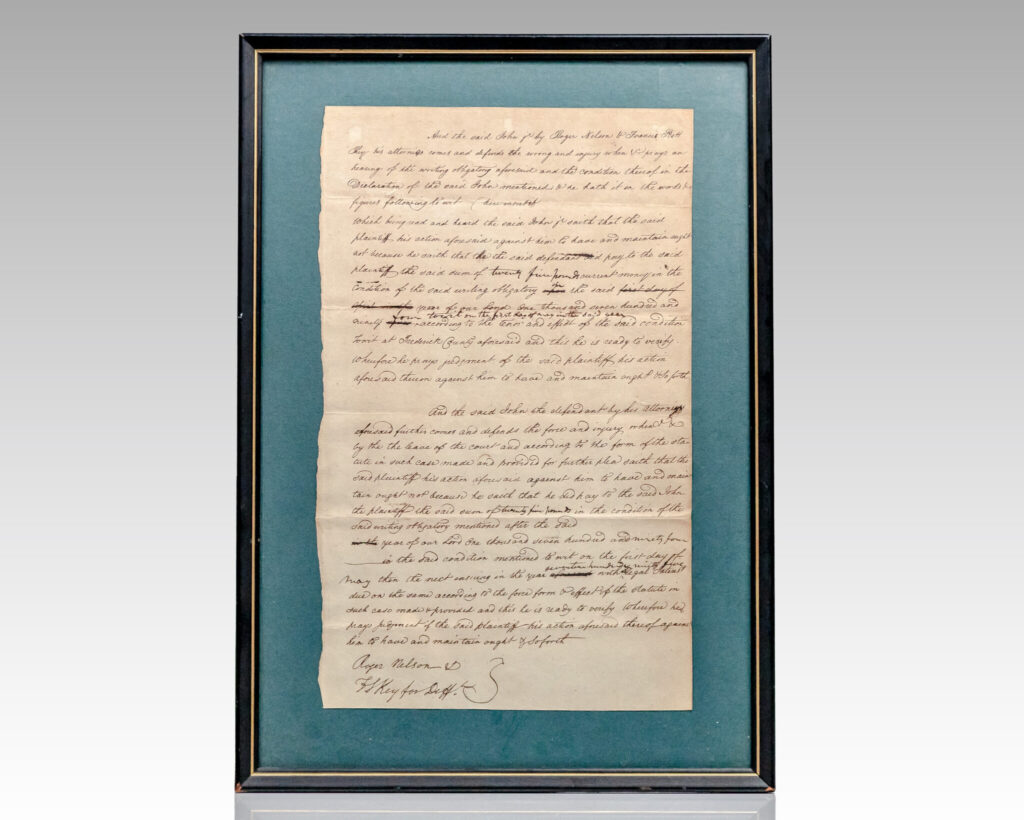 And the said John jr by Roger Nelson & Francis Scott
Key his attornies comes and defends the wrong and injury when &c & prays an
hearing of the writing obligatory aforesaid and the condition thereof in the
Declaration of the said John mentioned & he hath it in the words &
figures following to wit
Which being read and heard the said John jr saith that the said
plaintiff his action aforesaid against him to have and maintain ought
not because he saith that the the said defendant did pay to the said
plaintiff the said sum of twenty five pounds current money in the
Condition of the said writing obligatory in the said first day of
year of our Lord One thousand seven hundred and
four to wit on the first day of may in the said year
ninety according to the tenor and effect of the said condition
towit at Frederick County aforesaid and this he is ready to verify
Wherefore he prays judgment of the said plaintiff his action
aforesaid thereon against him to have and maintain ought & so forth
And the said John the defendant by his attorneys
aforesaid further comes and defends the force and injury, when &
by the the leave of the court and according to the form of the sta-
tute in such case made and provided for further plea saith that the
said plaintiff his action aforesaid against him to have and main
tain ought not because he said that he did pay to the said John
the plaintiff the said sum of twenty five pounds in the condition of the
said writing obligatory mentioned after the said
year of our Lord One thousand seven hundred and ninety four
in the said condition mentioned to wit on the first day of
seventeen hundred & ninety five
may then the next ensuing in the year with legal Interest
due on the same according to the force form & effect of the statute in
such case made & provided and this he is ready to verify Wherefore he
prays judgment if the said plaintiff his action aforesaid thereof against
him to have and maintain ought & so forth
Roger Nelson &
F S Key for Defft.